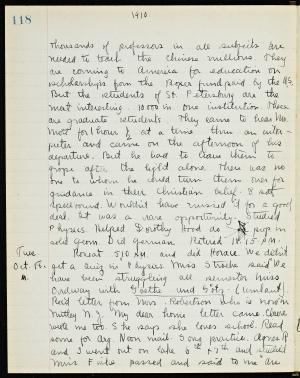 118
1910
thousands of professors in all subjects are
needed to teach the Chinese millions. They
are coming to America for education on
scholarships from the Boxer fund paid by the U.S.
But the students of St. Petersburg are the
most interesting. 10000 in one institution. These
are graduate students. They came to hear Mr.
Mott for 1 hour ½ at a time thru an inter-
preter and came on the afternoon of his
departure. But he had to leave them to
grope after the light alone. There was
no one to whom he could turn them over for
guidance in their Christian belief. I sat
spellbound. Wouldn't have missed it for a good
deal. It was a rare opportunity. Studied
Physics. Helped Dorothy Hood do prop in
solid Geom. Did German. Retired 10.15 P.M.
Tue. Rose at 5.10 A.M. and did Horace. We didn't
Oct. get a quiz in Physics. Miss said we
have been struggling all semester Miss
Ordway with Goethe and
Paid letter from Mrs. Robertson who is now in
Nutley N.J. My dear home letter came.
wrote me too. She says she loves school. Read
some for Arg. Noon mail. Song practice. Agnes R
and I went out on lake 6th + 7th and studied
Miss F who passed and said to me are